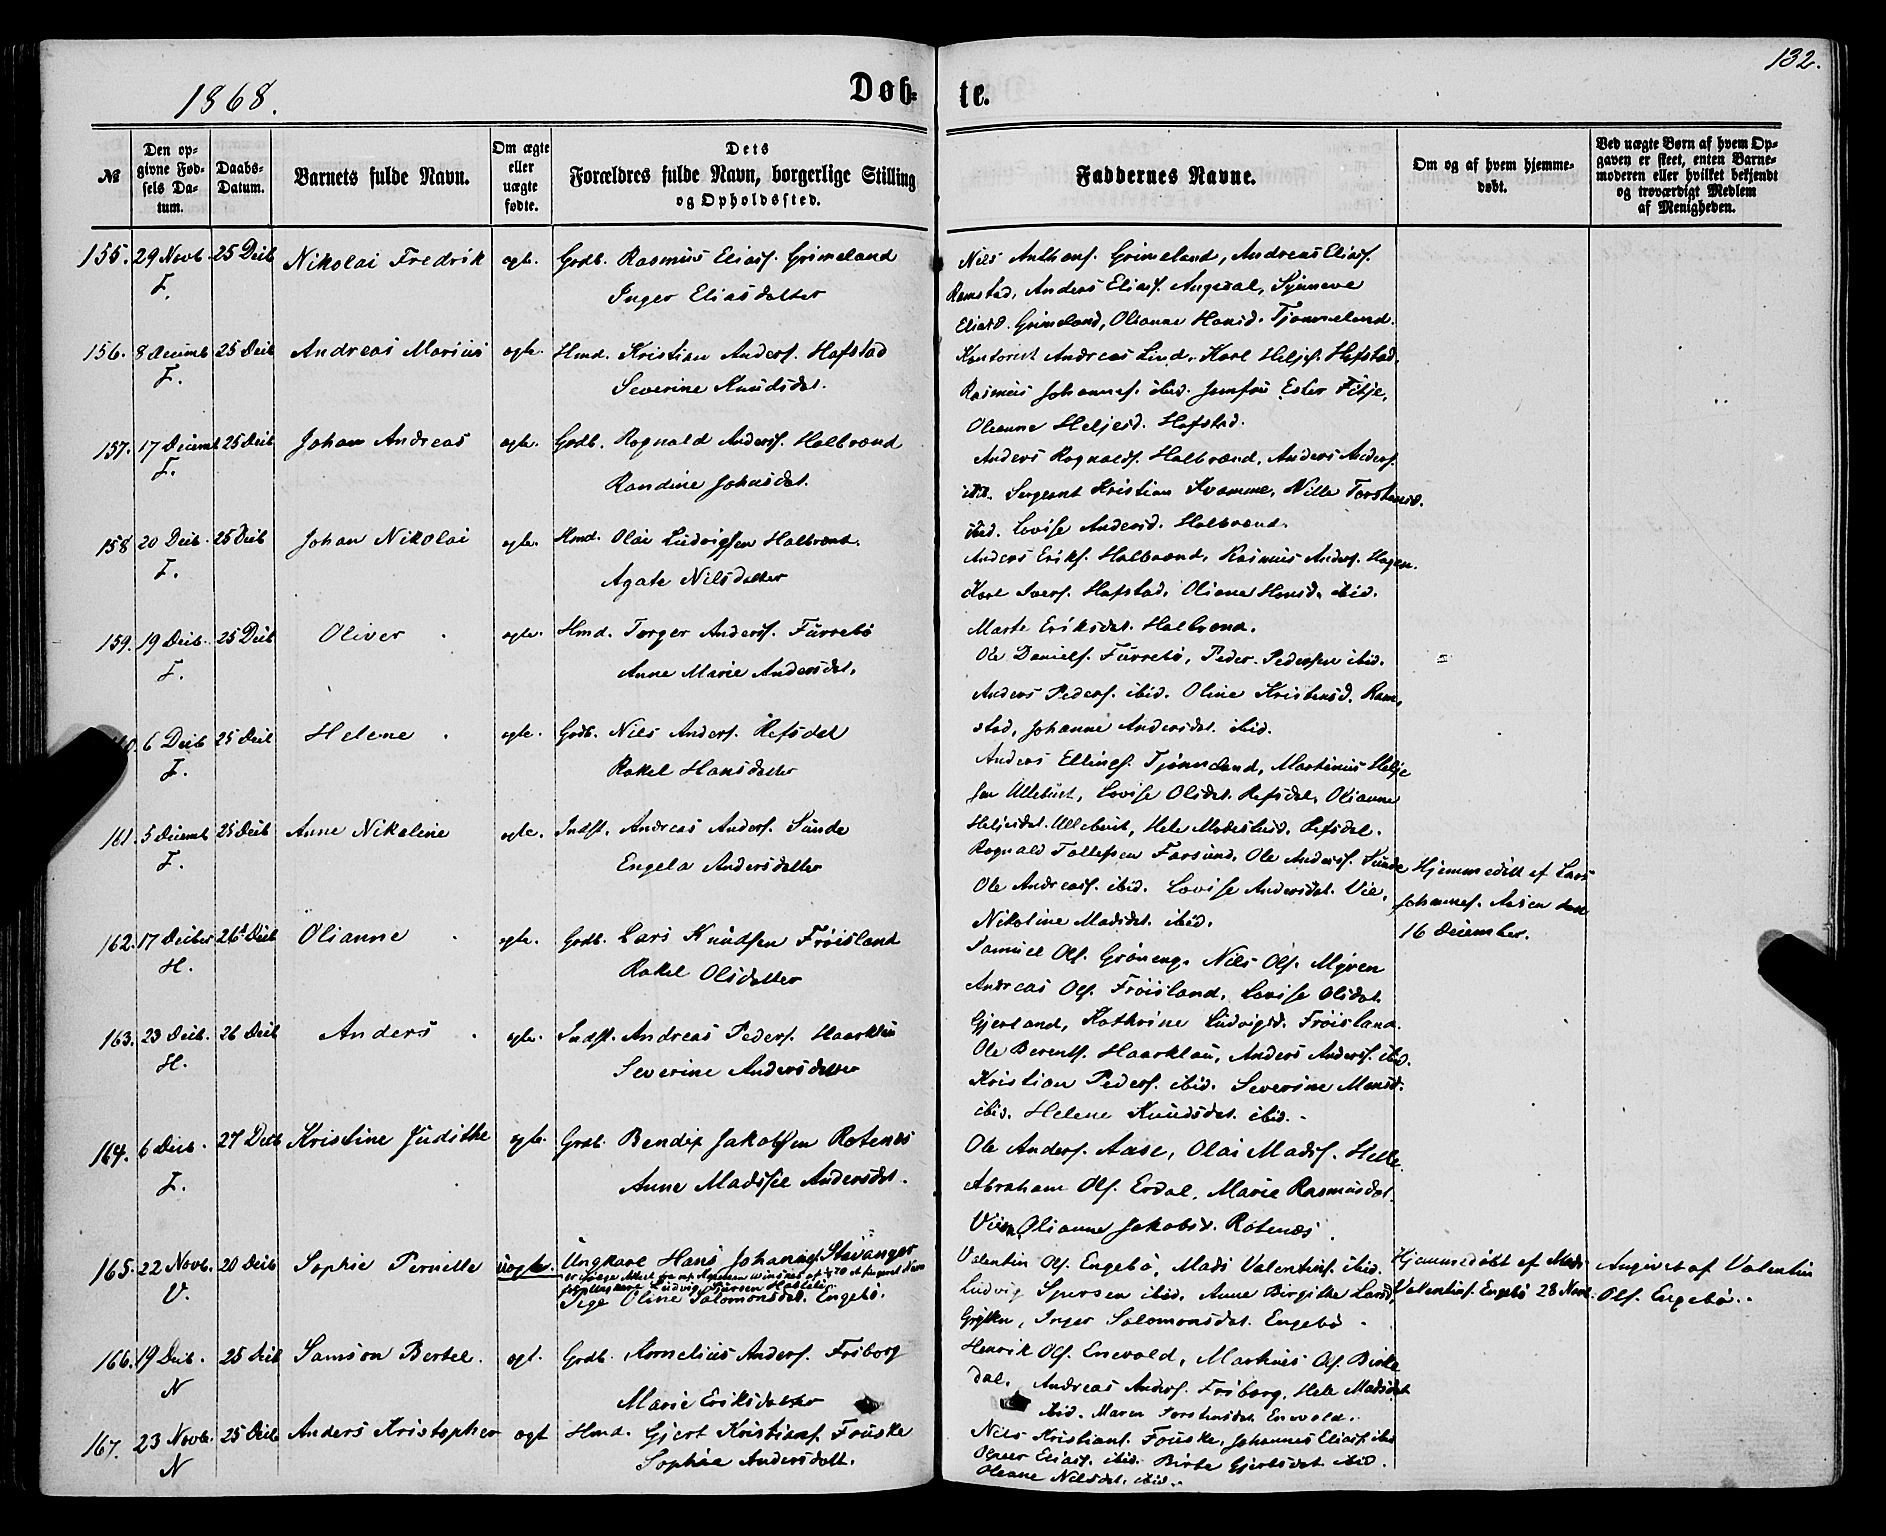 132.
1868.
Døb-
te.
№
Den op-
givne Fød-
sels Da-
tum.
Daabs-
Datum.
Barnets fulde Navn.
Om ægte
eller
uægte
fødte.
Dets
Forældres fulde Navn, borgerlige Stilling
og Opholdssted.
Faddernes Navne.
Om og af hvem hjemme-
døbt.
Ved uægte Børn af hvem Op-
gaven er skeet, enten Barne-
moderen eller hvilket bekjendt
og troværdigt Medlem
af Menigheden.
155. 29 Novb. 25 Decb Nikolai Fredrik ægte. Grdb. Rasmus Eliass. Grimeland
F. Inger Eliasdatter
Nils Anthons. Grimeland, Andreas Eliass.
Ramstad, Anders Eliass. Angedal, Synneve
Eliasd. Grimeland, Olianne Hansd. Tjønneland.
156. 8 Decemb 25 Decb Andreas Marius ægte. Hmd. Kristian Anders. Hafstad
F. Severine Knudsdat.
Kontorist Andreas Lind, Karl Heljes. Hafstad,
Rasmus Johannes. ibid. Jomfru Ester Fitje,
Olianne Heljesd. Hafstad.
157. 17 Decemb 25 Decb Johan Andreas ægte. Grdb. Ragnald Anders. Halbrænd
F. Randine Johnsdat.
Anders Ragnalds. Halbrænd, Anders Anders.
ibid. Sergeant Kristian Kvamme, Nille Torstensd.
ibid. Lovise Andersd. Halbrænd.
158 20 Decb. 25 Decb Johan Nikolai ægte. Hmd. Olai Ludvigsen Halbrænd.
F. Agate Nilsdatter
Anders Eriks. Halbrænd, Rasmus Anders. Hagen.
Karl Ivers. Hafstad, Oliane Hansd. ibid.
Marte Eriksdat. Halbrænd.
159. 19 Decb. 25 Decb Oliver ægte. Hmd. Torger Anders. Furrebø
F. Anne Marie Andersdat.
Ole Daniels. Furrebø, Peder Pedersen ibid.
Anders Peders. ibid. Oline Kristensd. Ram-
stad, Johanne Andersdat. ibid.
6 Decb 25 Decb Helene ægte. Grdb. Nils Anders. Refsdal
F. Rakel Hansdatter
Anders Ellings. Tjønneland, Martinus Helje
sen Ulletunt, Lovise Olsdat. Refsdal, Olianne
Heljesdat. Ulletunt, Hele Madisdat. Refsdal.
161. 5 Decemb 25 Decb Anne Nikoline ægte. Indst. Andreas Anders. Sunde
F. Engela Andersdatter
Ragnald Tollefsen Farsund, Ole Anders. Sunde
Ole Andreass. ibid. Lovise Andersdat. Vie,
Nikoline Madsdat. ibid.
Hjemmedøbt af Lars
Johannes. Aasen den
16 December.
162. 17 Decber 26de Decb Olianne ægte. Grdb. Lars Knudsen Frøisland
H. Rakel Olsdatter
Samuel Ols. Grøneng, Nils Ols. Myren
Andreas Ols. Frøisland, Lovise Olsdat.
Gjerland, Kathrine Ludvigsd. Frøisland.
163. 23 Decb. 26 Decb Anders ægte. Indst. Andreas Peders. Haarklau
H. Severine Andersdatter
Ole Berents. Haarklau, Anders Anders. ibid.
Kristian Peders. ibid. Severine Monsd.
ibid. Helene Knudsdat. ibid.
164. 6 Decb. 27 Decb Kristine Judithe ægte. Grdb. Bendix Jakobsen Rotenæs
F. Anne Madsdat Andersdat.
Ole Anders. Aase, Olai Mads. Helle
Abraham Ols. Erdal, Marie Rasmusdat.
Vie, Olianne Jakobsd. Rotenæs
165. 22 Novb. 20 Decb Sophie Pernille uægte. Ungkarl Hans Johannes. Stavanger
V. Pige Oline Salomonsdat. Engebø.
Valentin Ols. Engebø, Mads Valentins. ibid.
Ludvig Spersen ibid. Anne Birgithe Larsd.
Inger Salomonsdat. Engebø
Hjemmedøbt af Mads
Valentins. Engebø 28 Novb.
Angivet af Valentin
Ols. Engebø.
166. 19 Decb. 25 Decb Samson Bertel. ægt. Grdb. Kornelius Anders. Friborg
N Marie Eriksdatter
Henrik Ols. Enevold, Markus Ols. Birke
dal, Andreas Anders. Friborg, Hele Madsdat
ibid. Maren Torstensdat. Enevold.
167. 23 Novb. 25 Decb Anders Kristopher ægt Hmd. Gjert Kristians. Fouske
N Sophie Andersdatt.
Nils Kristians. Fouske, Johannes Eliass. ibid
Eliass. ibid. Birte Gjertsdat. ibid.
Oleane Nilsdat. ibid.